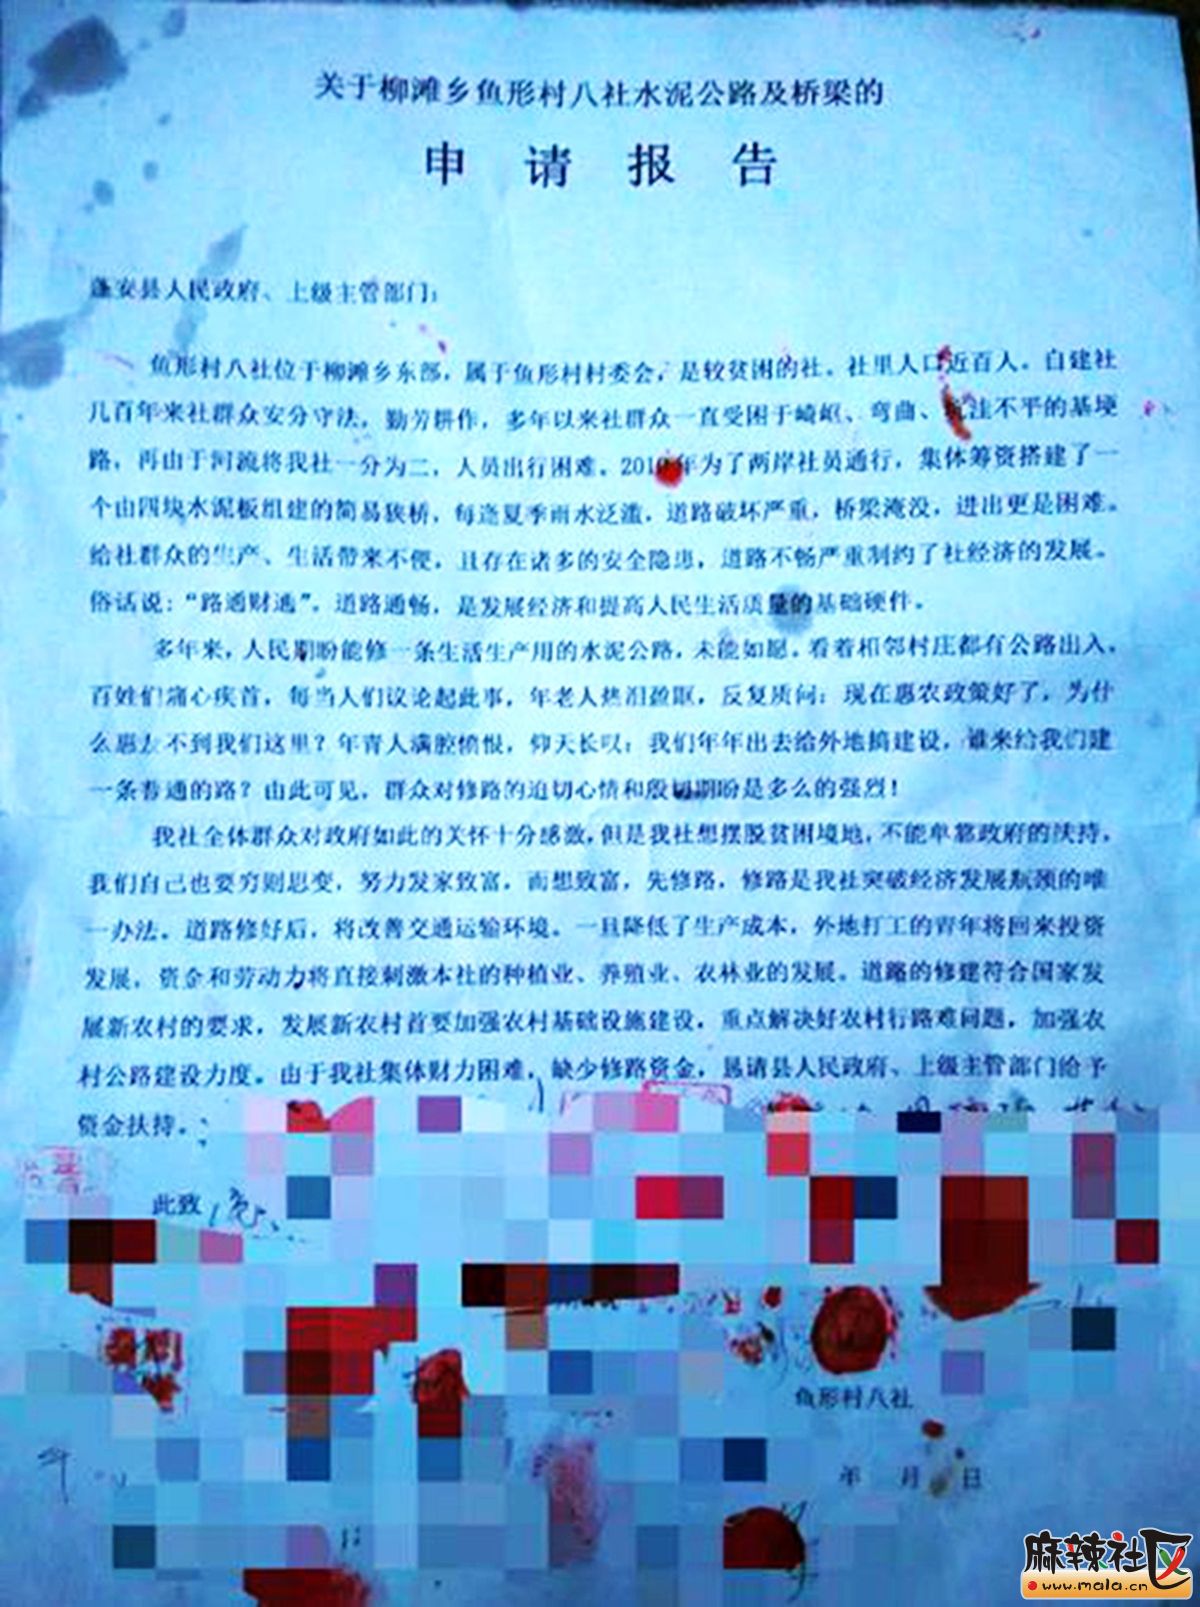 关于柳滩乡鱼形村八社水泥公路及桥梁的
申请报告
蓬安县人民政府、上级主管部门：
鱼形村八社位于柳滩乡东部，属于鱼形村村委会，是较贫困的社。社里人口近百人。自建社
几百年来社群众安分守法，勤劳耕作，多年以来社群众一直受困于崎岖、弯曲、坑洼不平的基埂
路，再由于河流将我社一分为二，人员出行困难。2010年为了两岸社员通行，集体筹资搭建了一
个由四块水泥板组建的简易狭桥，每逢夏季雨水泛滥，道路破坏严重，桥梁淹没，进出更是困难。
给社群众的生产、生活带来不便，且存在诸多的安全隐患，道路不畅严重制约了社经济的发展。
俗话说：“路通财通”。道路通畅，是发展经济和提高人民生活质量的基础硬件。
多年来，人民期盼能修一条生活生产用的水泥公路，未能如愿。看着相邻村庄都有公路出入，
百姓们痛心疾首，每当人们议论起此事，年老人热泪盈眶，反复质问：现在惠农政策好了，为什
么惠去不到我们这里？年青人满腔愤恨，仰天长叹：我们年年出去给外地搞建设，谁来给我们建
一条普通的路？由此可见，群众对修路的迫切心情和殷切期盼是多么的强烈！
我社全体群众对政府如此的关怀十分感激，但是我社想摆脱贫困境地，不能单靠政府的扶持，
我们自己也要穷则思变，努力发家致富，而想致富，先修路，修路是我社突破经济发展瓶颈的唯
一办法。道路修好后，将改善交通运输环境。一旦降低了生产成本，外地打工的青年将回来投资
发展，资金和劳动力将直接刺激本社的种植业、养殖业、农林业的发展。道路的修建符合国家发
展新农村的要求，发展新农村首要加强农村基础设施建设，重点解决好农村行路难问题，加强农
村公路建设力度。由于我社集体财力困难，缺少修路资金，恳请县人民政府、上级主管部门给予
资金扶持。
此致
鱼形村八社
年 月 日
麻辣社区
www.mala.cn